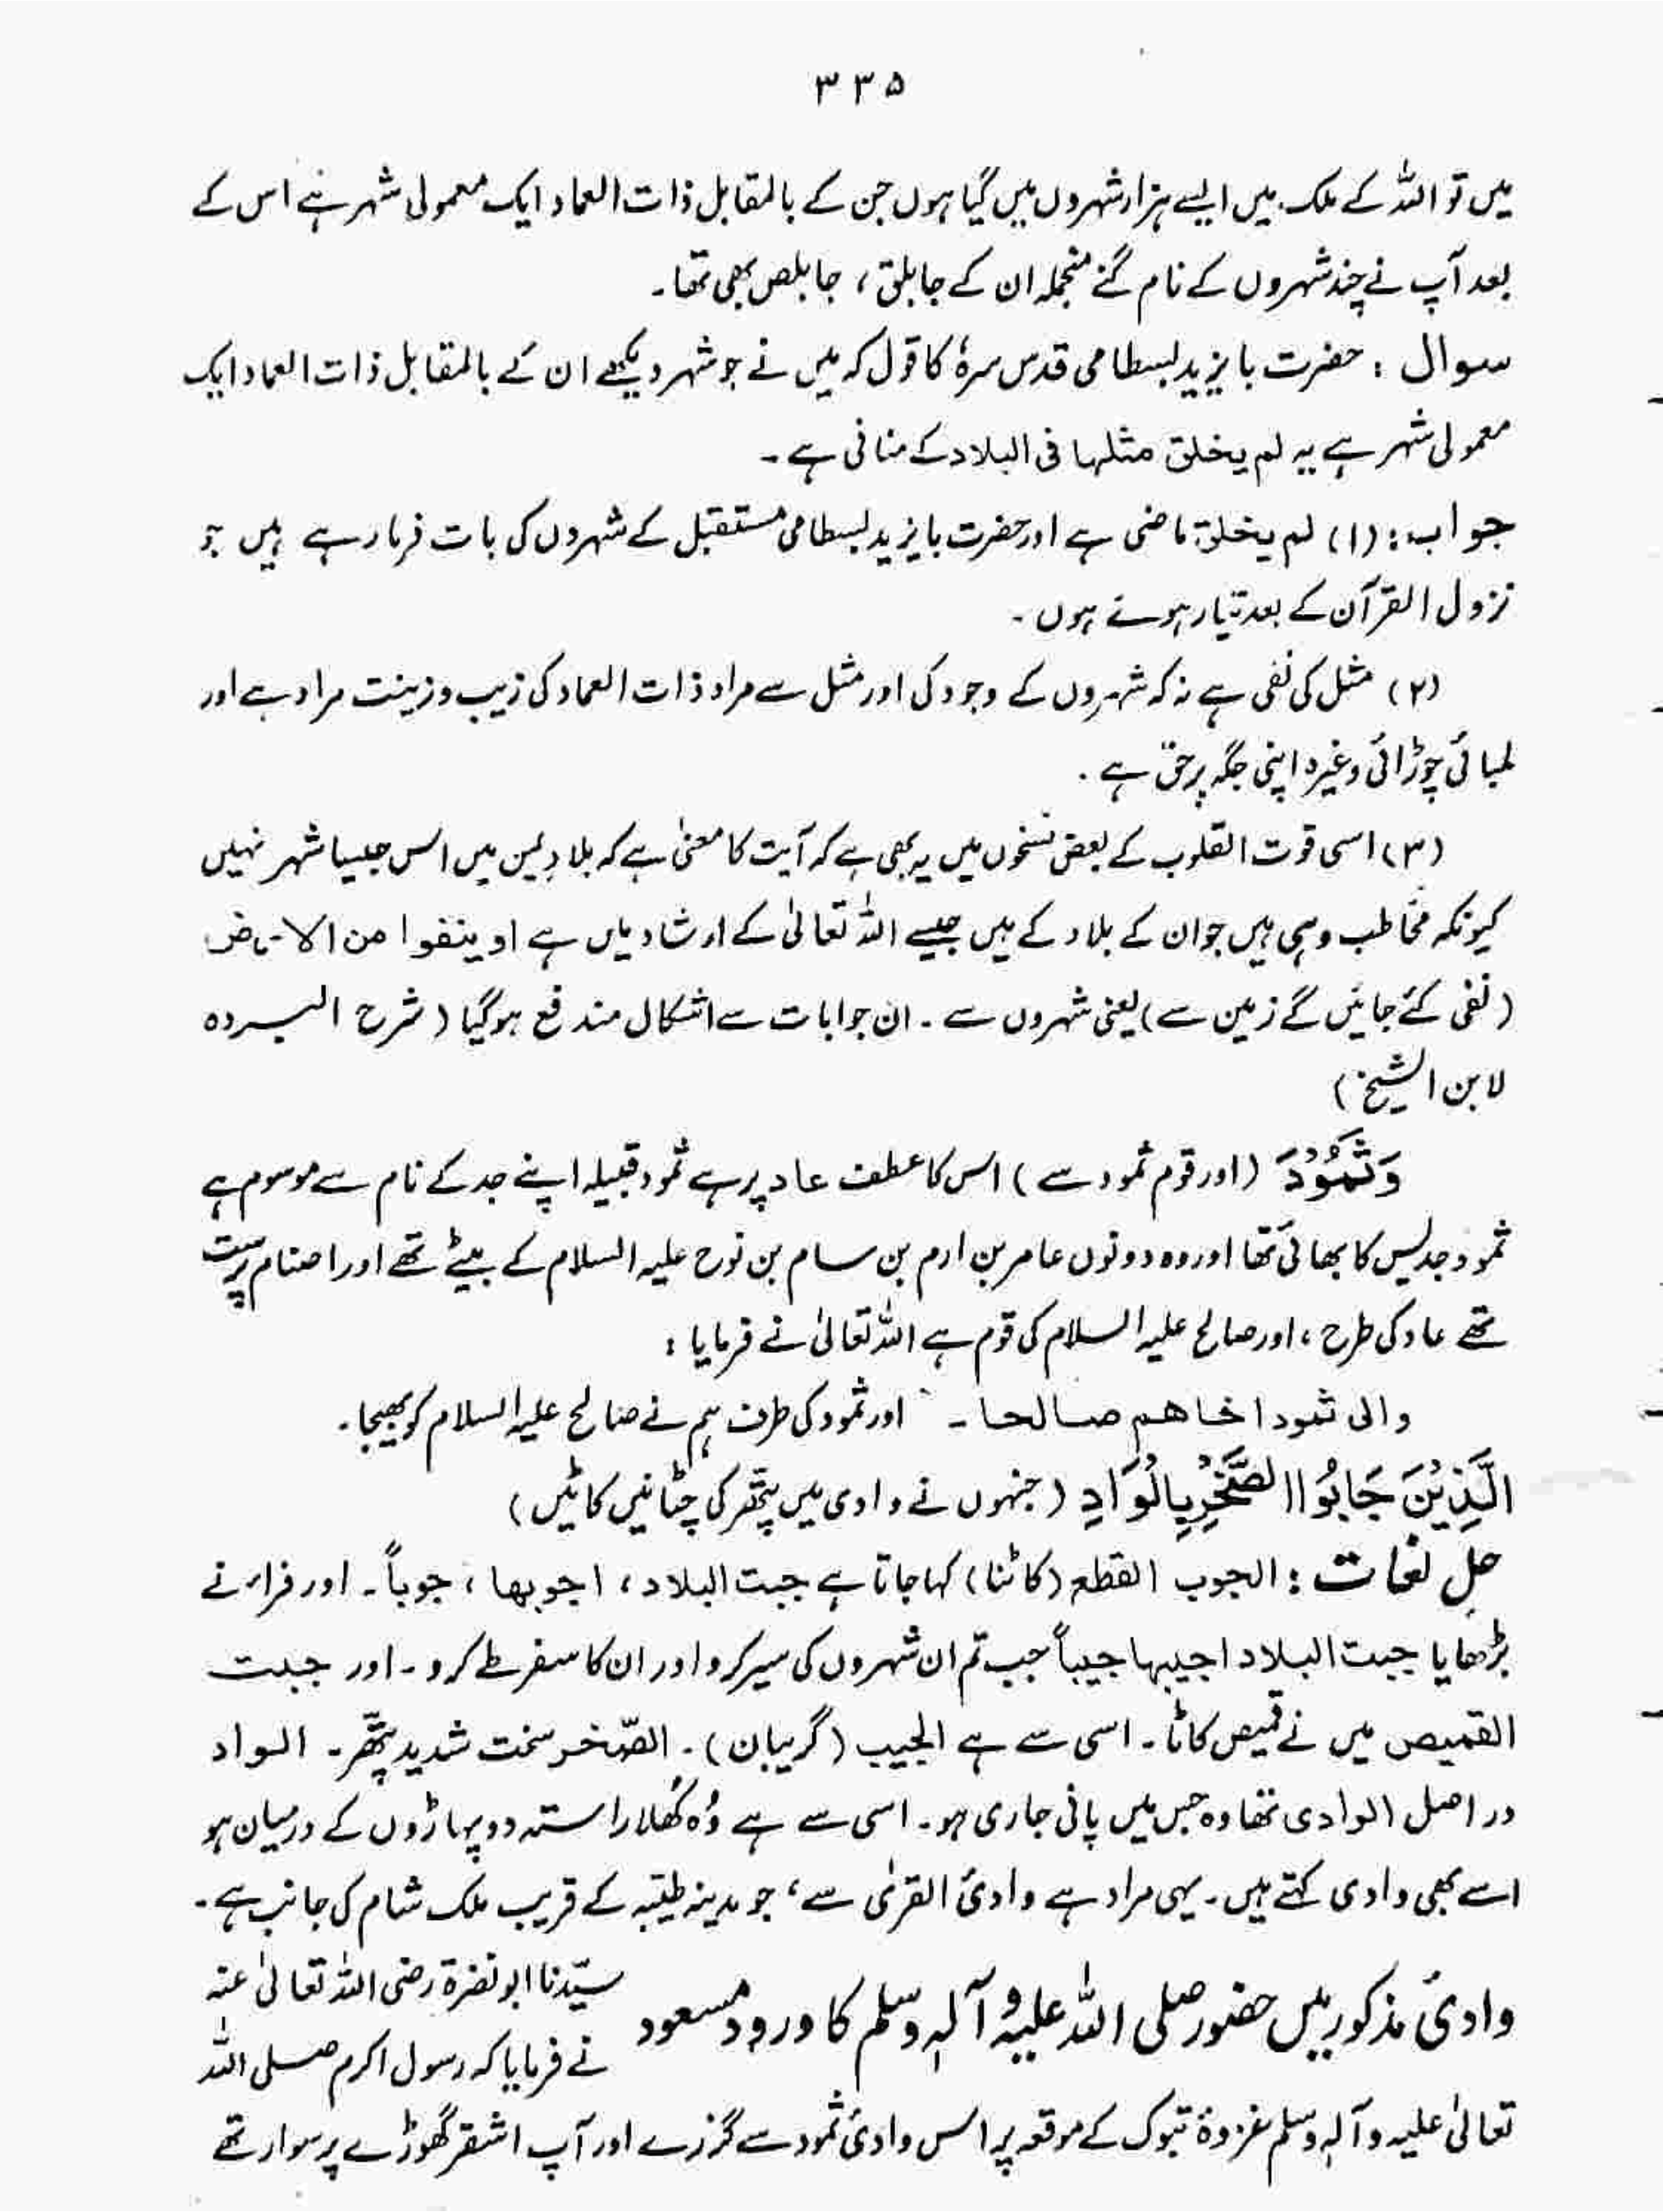 ۳۳۵
میں تو اللہ کے ملک میں ایسے ہزار شہروں میں گیا ہوں جن کے بالمقابل ذات العماد ایک معمولی شہر ہے اس کے
بعد آپ نے چند شہروں کے نام گنے منجملہ ان کے جابلق ، جابلص بھی تھا۔
سوال : حضرت بایزید بسطامی قدس سرہٗ کا قول کہ میں نے جو شہر دیکھے ان کے بالمقابل ذات العماد ایک
معمولی شہر ہے یہ لم یخلق مثلہا فی البلاد کے منافی ہے ۔
جواب : (۱) لم یخلق ماضی ہے اور حضرت بایزید بسطامی مستقبل کے شہروں کی بات فرما رہے ہیں جو
نزول القرآن کے بعد تیار ہوئے ہوں ۔
(۲) مثل کی نفی ہے نہ کہ شہروں کے وجود کی اور مثل سے مراد ذات العماد کی زیب و زینت مراد ہے اور
لمبائی چوڑائی وغیرہ اپنی جگہ پر حق ہے ۔
(۳) اسی قوت القلوب کے بعض نسخوں میں یہ بھی ہے کہ آیت کا معنیٰ ہے کہ بلادِ یمن میں اس جیسا شہر نہیں
کیونکہ مخاطب وہی ہیں جو ان کے بلاد کے ہیں جیسے اللہ تعالیٰ کے ارشاد میں ہے او ینفوا من الارض
(نفی کئے جائیں گے زمین سے) یعنی شہروں سے ۔ ان جوابات سے اشکال مندفع ہو گیا (شرح البردہ
لابن الشیخ)
وَثَمُوْدَ (اور قوم ثمود سے) اس کا عطف عاد پر ہے ثمود قبیلہ اپنے جد کے نام سے موسوم ہے
ثمود جدیس کا بھائی تھا اور وہ دونوں عامر بن ارم بن سام بن نوح علیہ السلام کے بیٹے تھے اور اصنام پرست
تھے عاد کی طرح ، اور صالح علیہ السلام کی قوم ہے اللہ تعالیٰ نے فرمایا :
والی ثمود اخاھم صالحا ۔ اور ثمود کی طرف ہم نے صالح علیہ السلام کو بھیجا ۔
الَّذِیْنَ جَابُوا الصَّخْرَ بِالْوَادِ (جنہوں نے وادی میں پتھر کی چٹانیں کاٹیں)
حل لغات : الجوب القطع (کاٹنا) کہا جاتا ہے جبت البلاد ، اجوبھا ، جوباً ۔ اور فراء نے
بڑھایا جبت البلاد اجیبہا جیباً جب تم ان شہروں کی سیر کرو اور ان کا سفر طے کرو ۔ اور جبت
القمیص میں نے قمیص کاٹا ۔ اسی سے ہے الجیب (گریبان) ۔ الصّخر سخت شدید پتھر ۔ الواد
در اصل الوادی تھا وہ جس میں پانی جاری ہو ۔ اسی سے ہے وُہ کُھلا راستہ دو پہاڑوں کے درمیان ہو
اسے بھی وادی کہتے ہیں ۔ یہی مراد ہے وادیٔ القریٰ سے ، جو مدینہ طیّبہ کے قریب ملک شام کی جانب ہے ۔
وادیٔ مذکور میں حضور صلی اللہ علیہ وآلہٖ وسلم کا ورودِ مسعود
سیّدنا ابو نضرۃ رضی اللہ تعالیٰ عنہ
نے فرمایا کہ رسول اکرم صلی اللہ
تعالیٰ علیہ وآلہٖ وسلم غزوۃ تبوک کے موقعہ پر اس وادیٔ ثمود سے گزرے اور آپ اشقر گھوڑے پر سوار تھے